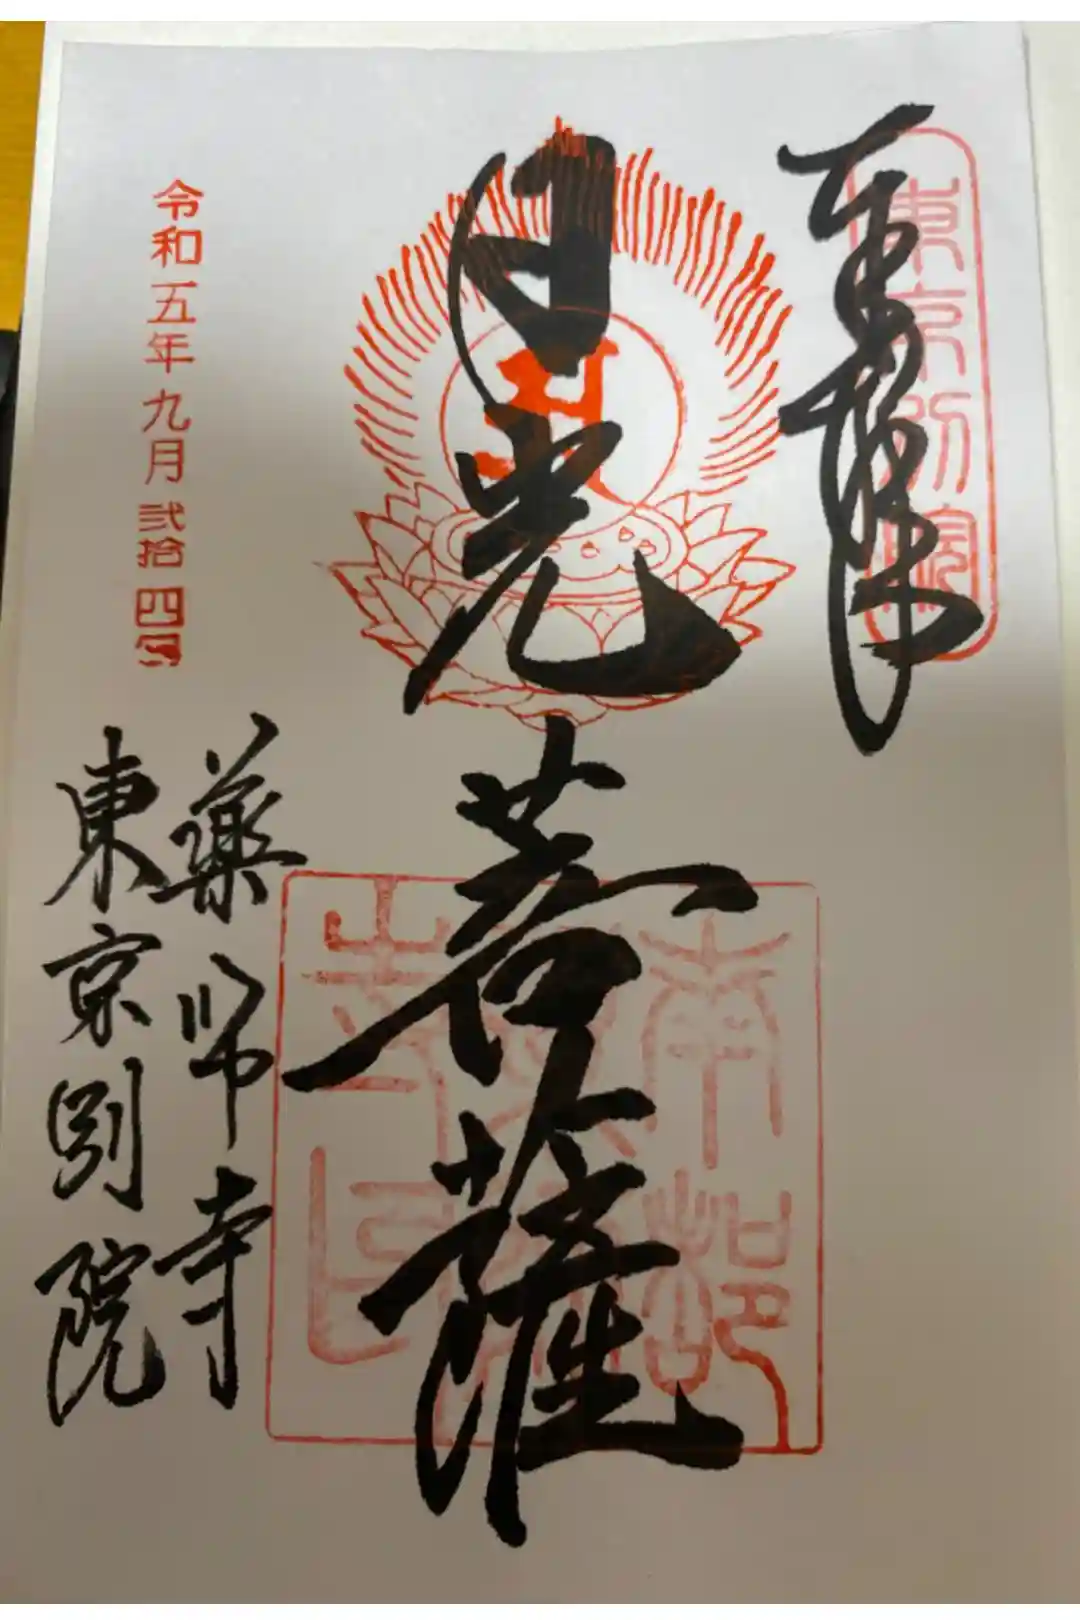 奉拝
東京別院
日光菩薩
南都
寺印
薬师寺
東京別院
令和五年九月弐拾四日